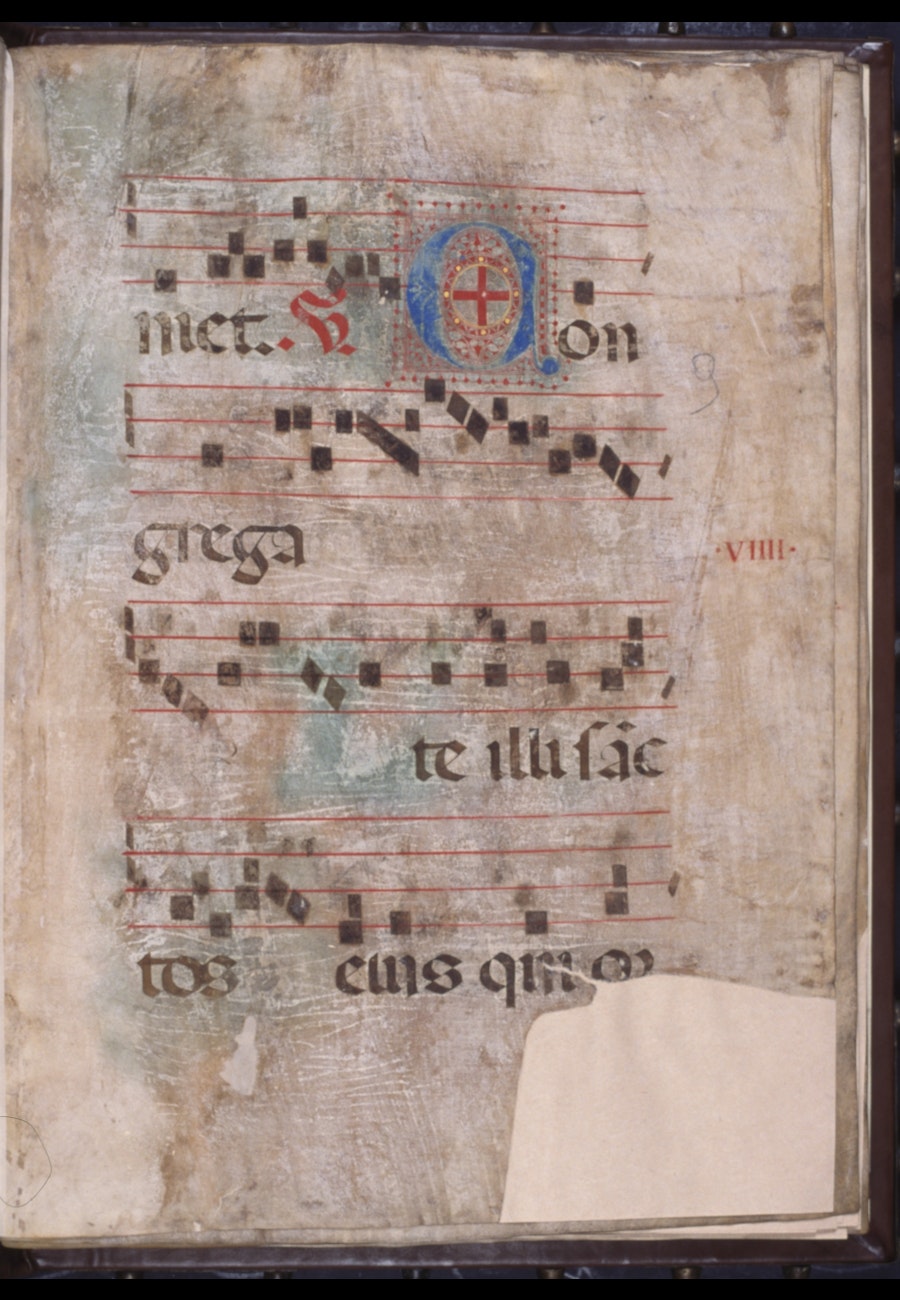 met. ℣ Con
grega
·VIIII·
te illi sãc
tos eius qui or